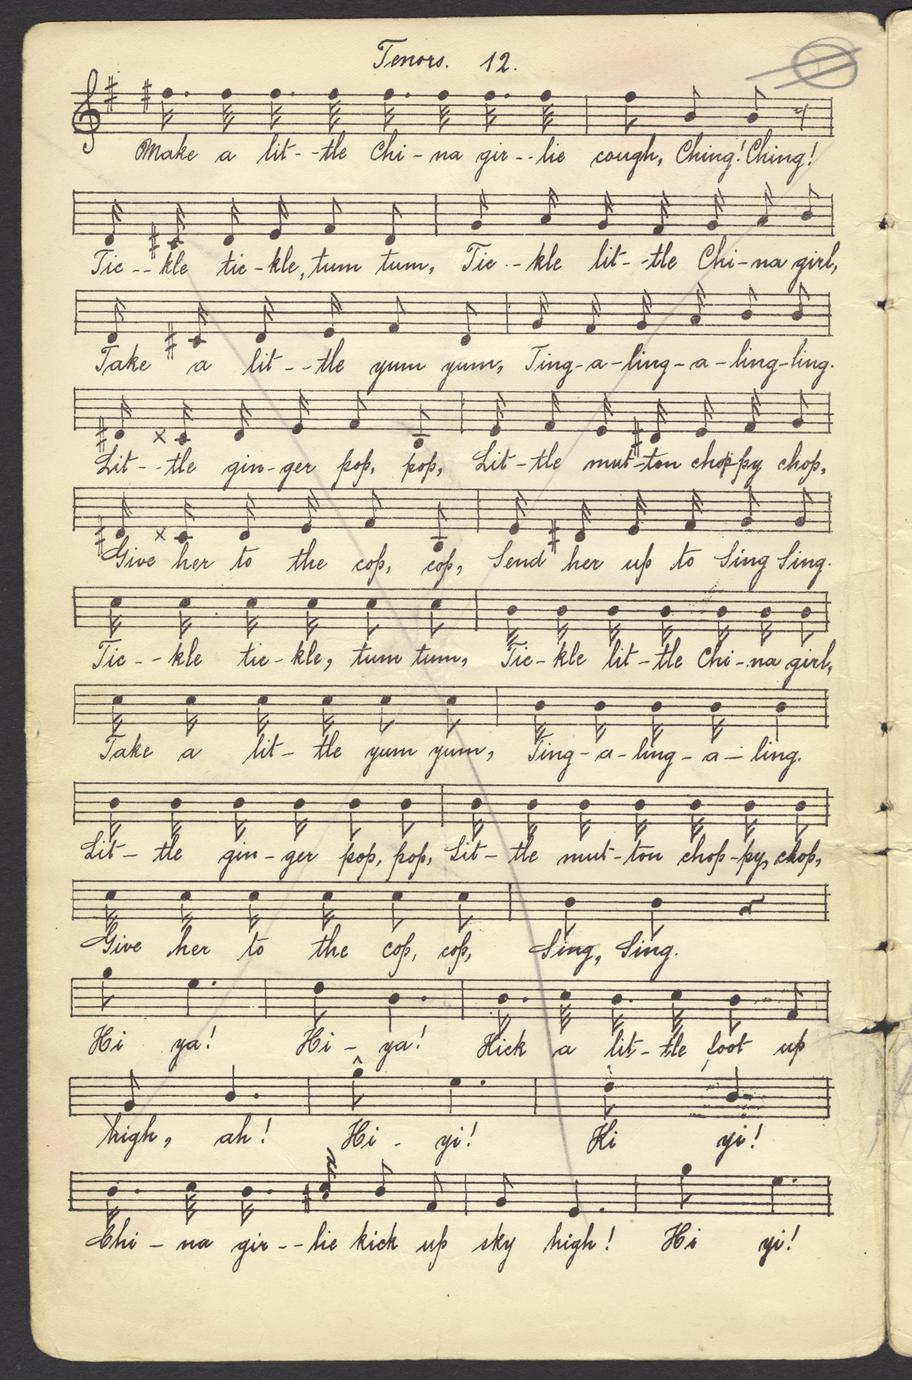 Tenors. 12.
Make a lit--tle Chi-na gir--lie cough, Ching! Ching!
Tic--kle tic-kle, tum tum, Tic--kle lit--tle Chi-na girl,
Take a lit--tle yum yum, Ting-a-ling-a-ling-ling.
Lit--tle gin-ger pop, pop, Lit-tle mut-ton choppy chop,
Give her to the cop, cop, Send her up to Sing Sing.
Tic--kle tic-kle, tum tum, Tic-kle lit-tle Chi-na girl,
Take a lit-tle yum yum, Ting-a-ling-a-ling.
Lit-tle gin-ger pop, pop, Lit-tle mut-ton chop-py, chop,
Give her to the cop, cop, Sing, Sing.
Hi ya! Hi-ya! Kick a lit-tle foot up
high, ah! Hi-yi! Hi yi!
Chi-na gir--lie kick up sky high! Hi yi!